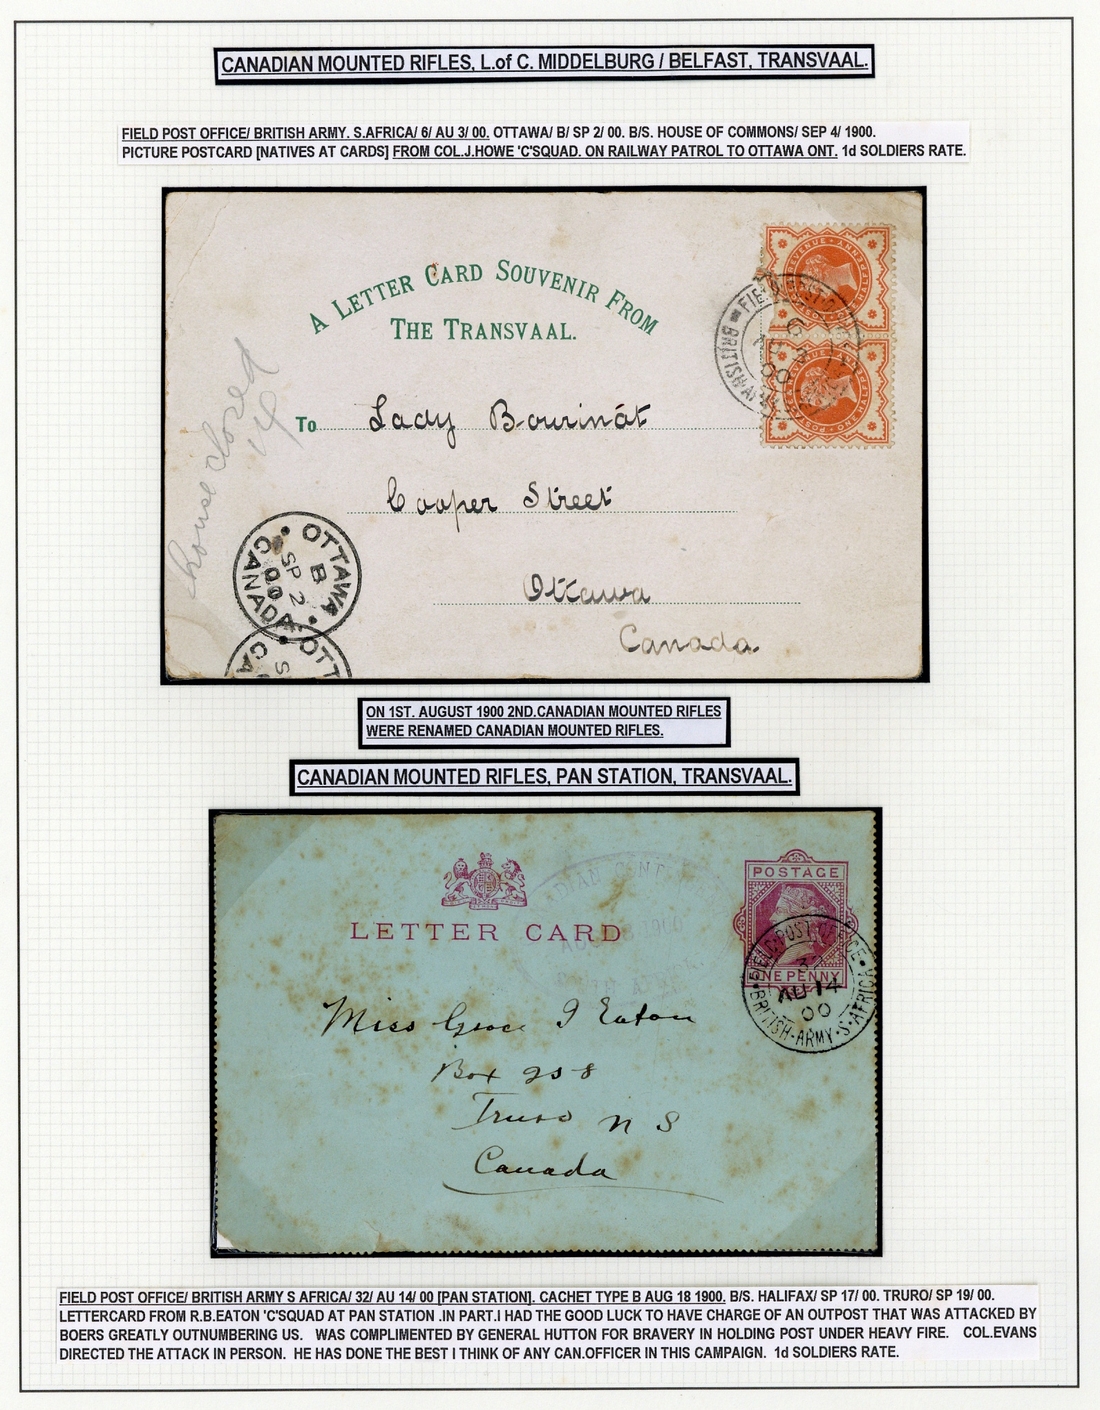 CANADIAN MOUNTED RIFLES, L.of C. MIDDELBURG / BELFAST, TRANSVAAL.
FIELD POST OFFICE/ BRITISH ARMY. S.AFRICA/ 6/ AU 3/ 00. OTTAWA/ B/ SP 2/ 00. B/S. HOUSE OF COMMONS/ SEP 4/ 1900.
PICTURE POSTCARD [NATIVES AT CARDS] FROM COL.J.HOWE 'C'SQUAD. ON RAILWAY PATROL TO OTTAWA ONT. 1d SOLDIERS RATE.
A LETTER CARD SOUVENIR FROM
THE TRANSVAAL.
POSTAGE & REVENUE ONE HALFPENNY
6
AU 3
00
BRITISH A
POSTAGE & REVENUE ONE HALFPENNY
house closed
To Lady Bourinot
Cooper Street
Ottawa
Canada
OTTAWA
B
SP 2
00
CANADA
OTT
S
CA
ON 1ST. AUGUST 1900 2ND.CANADIAN MOUNTED RIFLES
WERE RENAMED CANADIAN MOUNTED RIFLES.
CANADIAN MOUNTED RIFLES, PAN STATION, TRANSVAAL.
POSTAGE
ONE PENNY
LETTER CARD
FIELD POST OFFICE
32
AU 14
00
BRITISH ARMY S. AFRICA
Miss Grace I Eaton
Box 258
Truro N S
Canada
FIELD POST OFFICE/ BRITISH ARMY S AFRICA/ 32/ AU 14/ 00 [PAN STATION]. CACHET TYPE B AUG 18 1900. B/S. HALIFAX/ SP 17/ 00. TRURO/ SP 19/ 00.
LETTERCARD FROM R.B.EATON 'C'SQUAD AT PAN STATION .IN PART.I HAD THE GOOD LUCK TO HAVE CHARGE OF AN OUTPOST THAT WAS ATTACKED BY
BOERS GREATLY OUTNUMBERING US. WAS COMPLIMENTED BY GENERAL HUTTON FOR BRAVERY IN HOLDING POST UNDER HEAVY FIRE. COL.EVANS
DIRECTED THE ATTACK IN PERSON. HE HAS DONE THE BEST I THINK OF ANY CAN.OFFICER IN THIS CAMPAIGN. 1d SOLDIERS RATE.